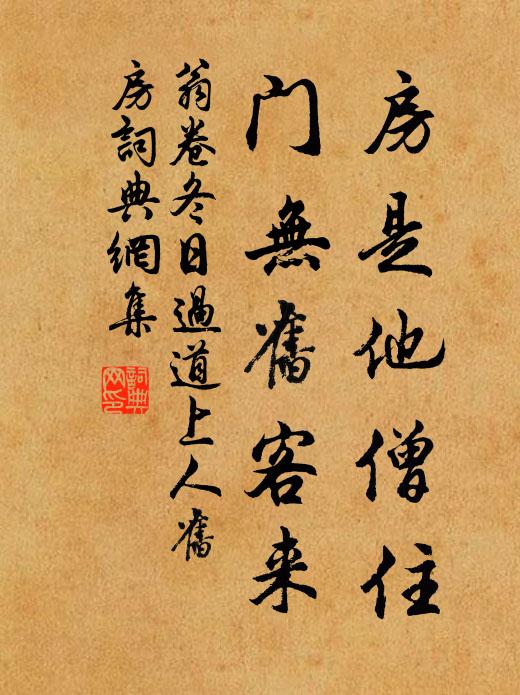 房是他僧住
门無舊客来
翁卷冬日過道上人舊
房詞典網集
詞典網印